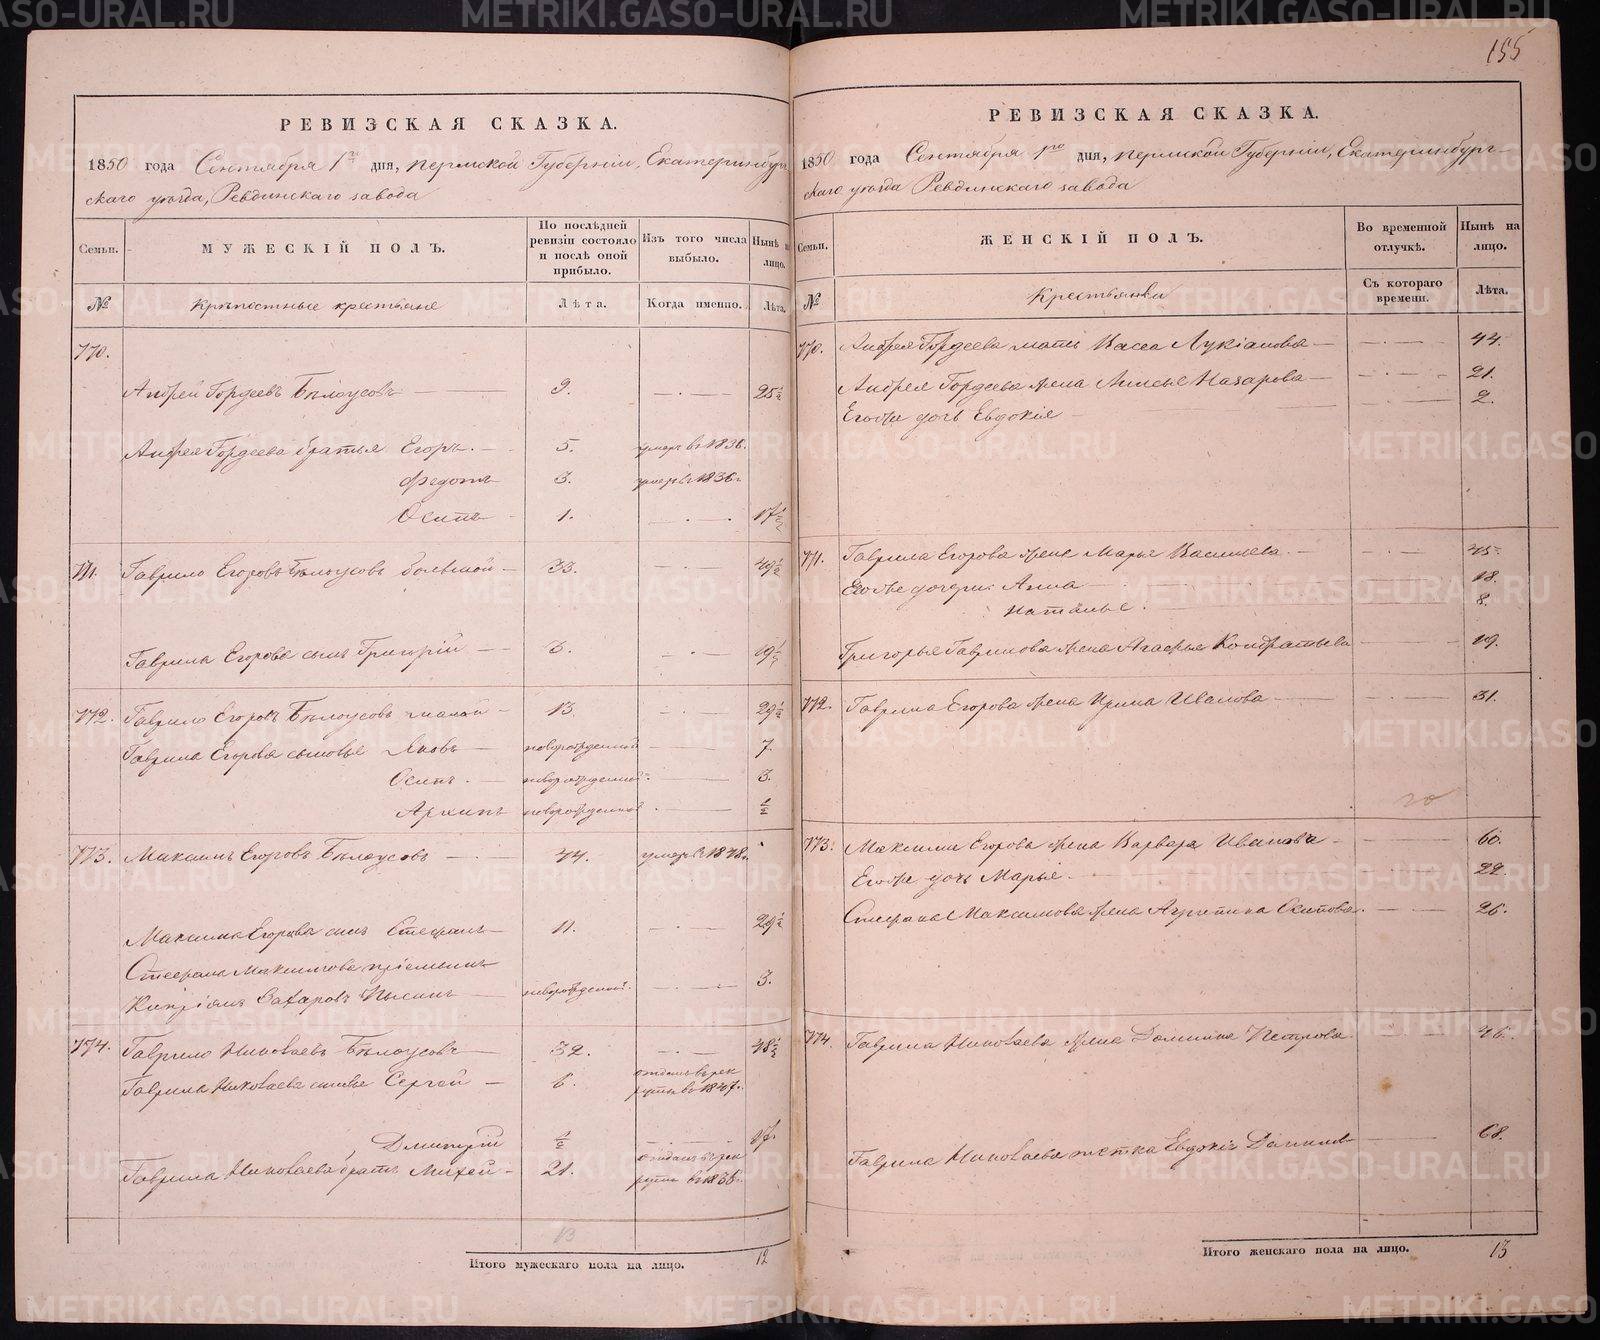 155
РЕВИЗСКАЯ СКАЗКА.
1850 года Сентября 1го дня, Пермской Губернiи, Екатеринбург
скаго уѣзда, Ревдинскаго завода
Семьи. МУЖЕСКIЙ ПОЛЪ. По послѣдней ревизiи состояло и послѣ оной прибыло. Изъ того числа выбыло. Нынѣ на лицо.
№ Крѣпостные крестьяне Лѣта. Когда именно. Лѣта.
770.
Андрей Гордеевъ Бѣлоусовъ 9. 25½
Андрея Гордеева братья Егоръ. 5. умеръ въ 1836.
Федотъ 3. умеръ въ 1836.
Осипъ 1. 17½
771. Гаврило Егоровъ Бѣлоусовъ большой 33. 49½
Гаврила Егорова сынъ Григорiй 3. 19½
772. Гаврило Егоровъ Бѣлоусовъ малой 13 29½
Гаврила Егорова сыновья Яковъ новорожденной 7.
Осипъ. новорожденной 3.
Архипъ новорожденной ½
773. Максимъ Егоровъ Бѣлоусовъ 44. умеръ въ 1848.
Максима Егорова сынъ Стефанъ 11. 29½
Стефана Максимова прiемышъ
Кипрiянъ Захаровъ новорожденной. 3.
774. Гаврило Николаевъ Бѣлоусовъ 32. 48½
Гаврила Николаева сыновья Сергей 6. отданъ въ рек
руты въ 1847.
Дмитрiй ½ 17.
Гаврила Николаева братъ Михей 21. отданъ въ рек
руты въ 1835.
13
Итого мужескаго пола на лицо. 12
РЕВИЗСКАЯ СКАЗКА.
1850 года Сентября 1го дня, Пермской Губернiи, Екатеринбург-
скаго уѣзда Ревдинскаго завода
Семьи. ЖЕНСКIЙ ПОЛЪ. Во временной отлучкѣ. Нынѣ на лицо.
№ Крестьянки Съ котораго времени. Лѣта.
770. Андрея Гордеева мать Васса Лукiанова 44.
Андрея Гордеева жена Назарова 21.
Егоже дочь Евдокiя 2.
771. Гаврила Егорова жена Марья Васильева. 45
Егоже дочери: Анна 18.
Наталья. 8.
Григорья Гаврилова жена Агафья Кондратьева 19.
772. Гаврила Егорова жена Ирина Иванова 31.
773. Максима Егорова жена Варвара Иванова 60.
Егоже дочь Марья. 22.
Стефана Максимова жена Агрипина Осипова. 26.
774. Гаврила Николаева жена Домника Петрова. 46.
Гаврила Николаева тетка Евдокiя 68.
Итого женскаго пола на лицо. 13
METRIKI.GASO-URAL.RU